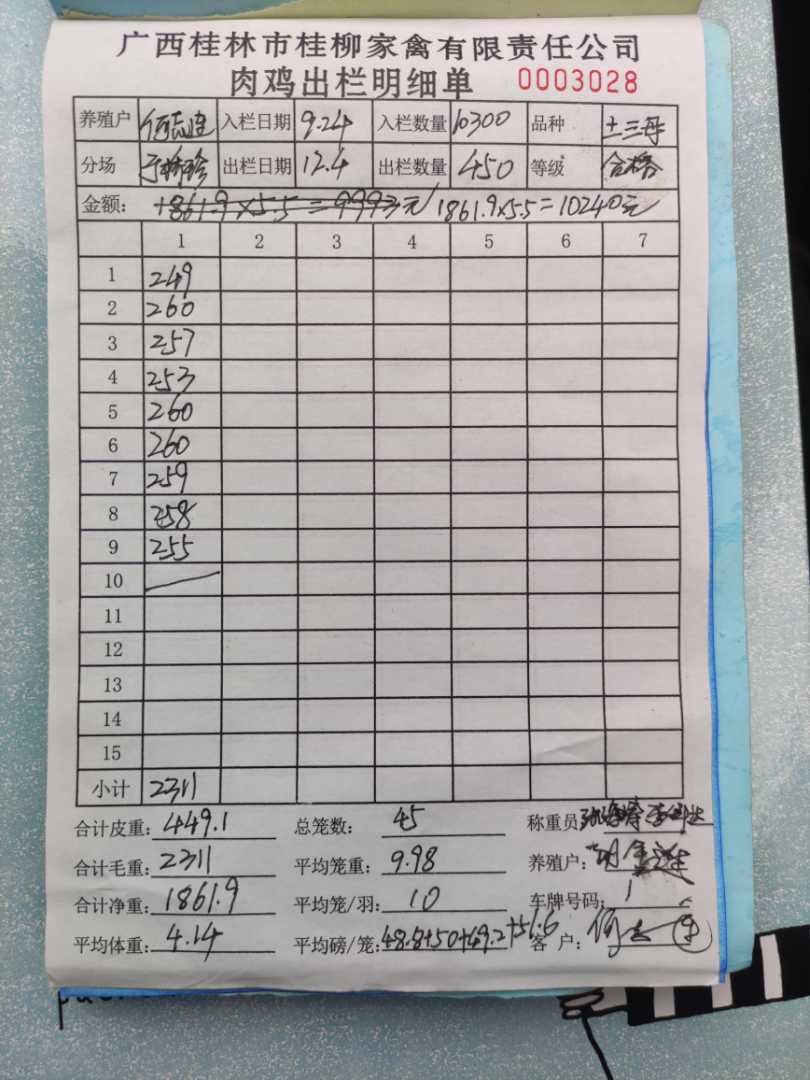 广西桂林市桂柳家禽有限责任公司
肉鸡出栏明细单 0003028
养殖户 入栏日期 9.24 入栏数量 10300 品种 土三母
分场 出栏日期 12.4 出栏数量 450 等级 合格
金额: 1861.9×5.5=9993元 1861.9×5.5=10240元
1 2 3 4 5 6 7
1 249
2 260
3 257
4 253
5 260
6 260
7 259
8 258
9 255
10
11
12
13
14
15
小计 2311
合计皮重: 449.1 总笼数: 45 称重员
合计毛重: 2311 平均笼重: 9.98 养殖户:
合计净重: 1861.9 平均笼/羽: 10 车牌号码: 1
平均体重: 4.14 平均磅/笼: 48.8+50+49.2+51.6 客 户: